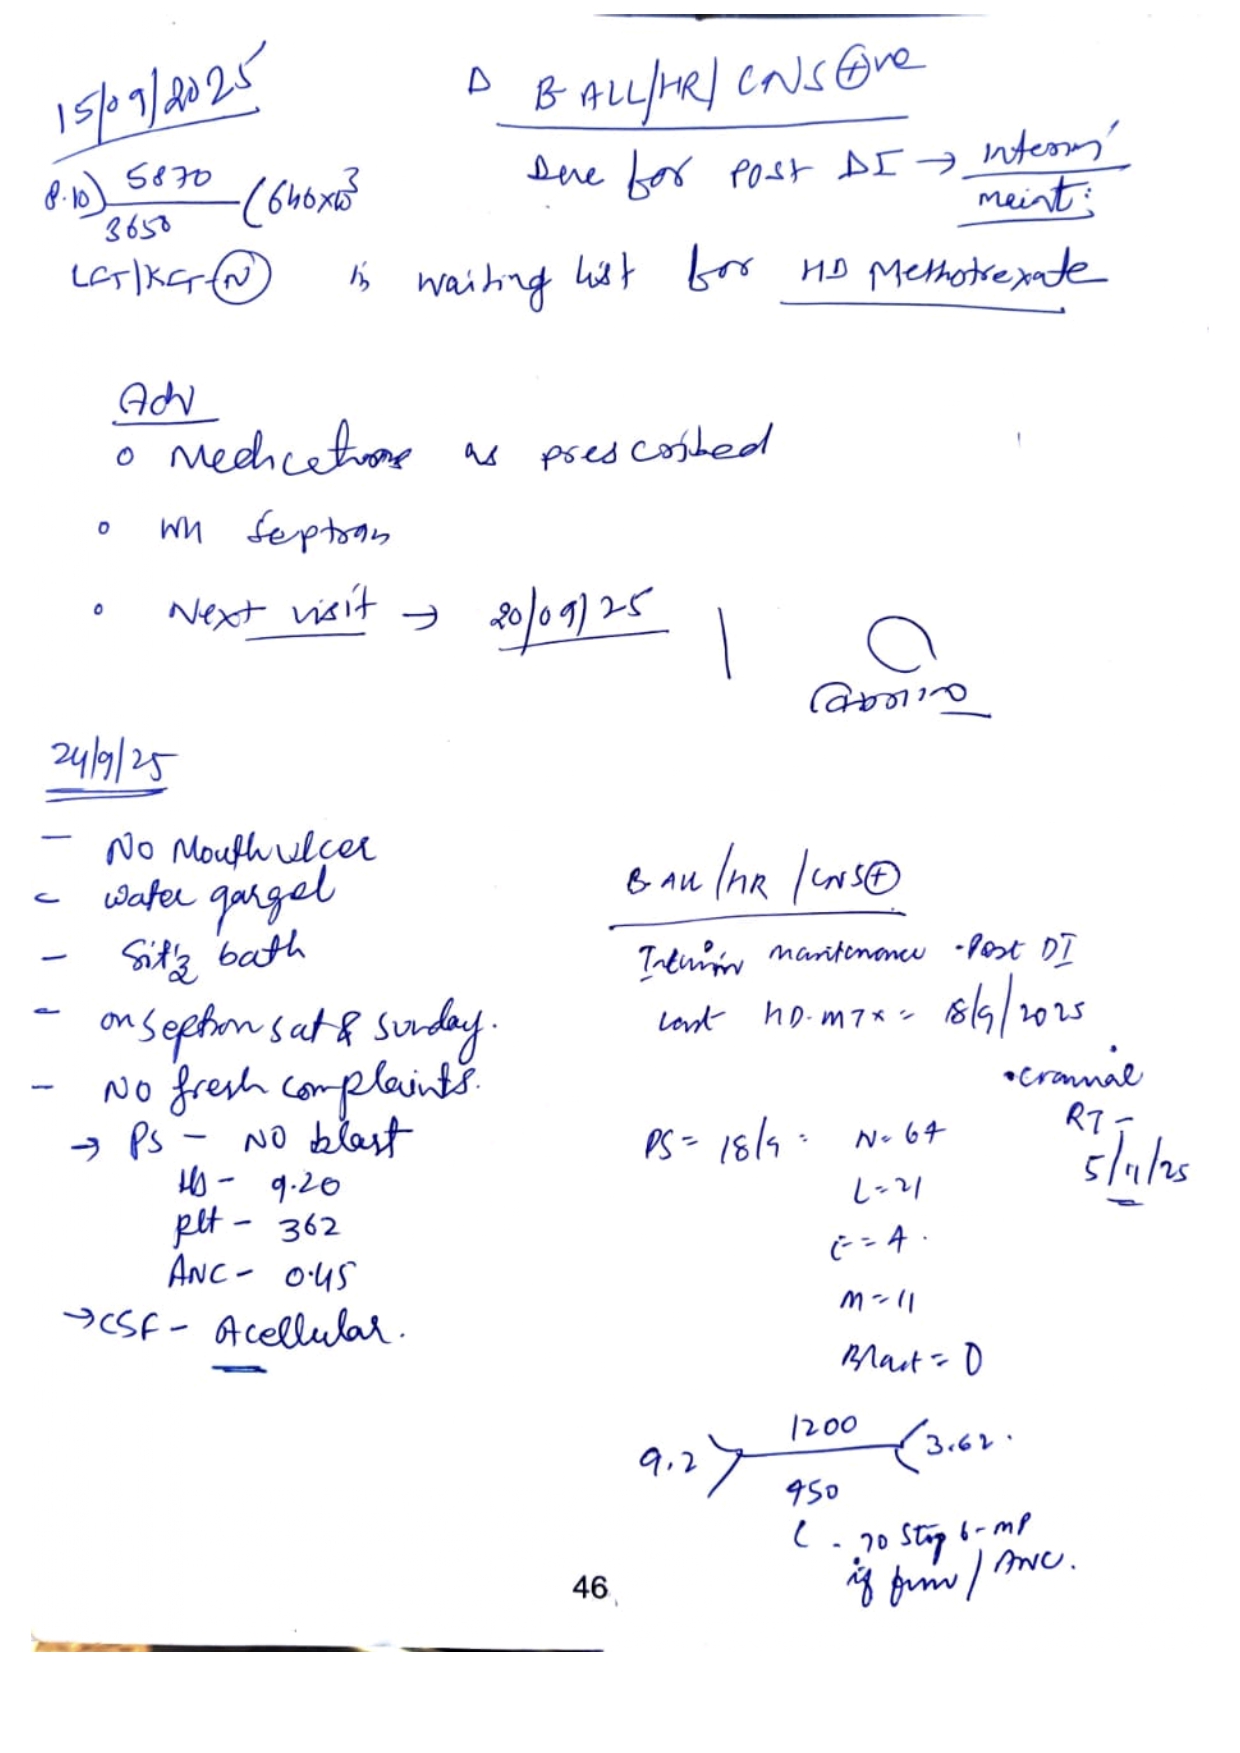 15/09/2025
Δ B-ALL/HR/CNS⊕ve
Due for Post DI → Interim
maint:
8.10) 5870 (646x10³
3650
LFT/KFT-Ⓝ
in waiting list for HD Methotrexate
Adv
o Medications as prescribed
o WH Septran
o Next visit → 20/09/25
24/9/25
- No Mouth ulcer
- water gargel
- Sit'z bath
- on Septran sat & Sunday.
- No fresh complaints.
→ PS - NO blast
Hb - 9.20
plt - 362
ANC - 0.45
→ CSF - Acellular.
B-ALL/HR/CNS⊕
Interim maintenance - Post DI
Last HD-MTX = 18/9/2025
• Crannial
RT -
PS = 18/9 : N = 64
L = 21
E = 4.
M = 11
Blast = 0
9.2 > 1200 < 3.62.
450
Stop 6-MP
if ANC.
46